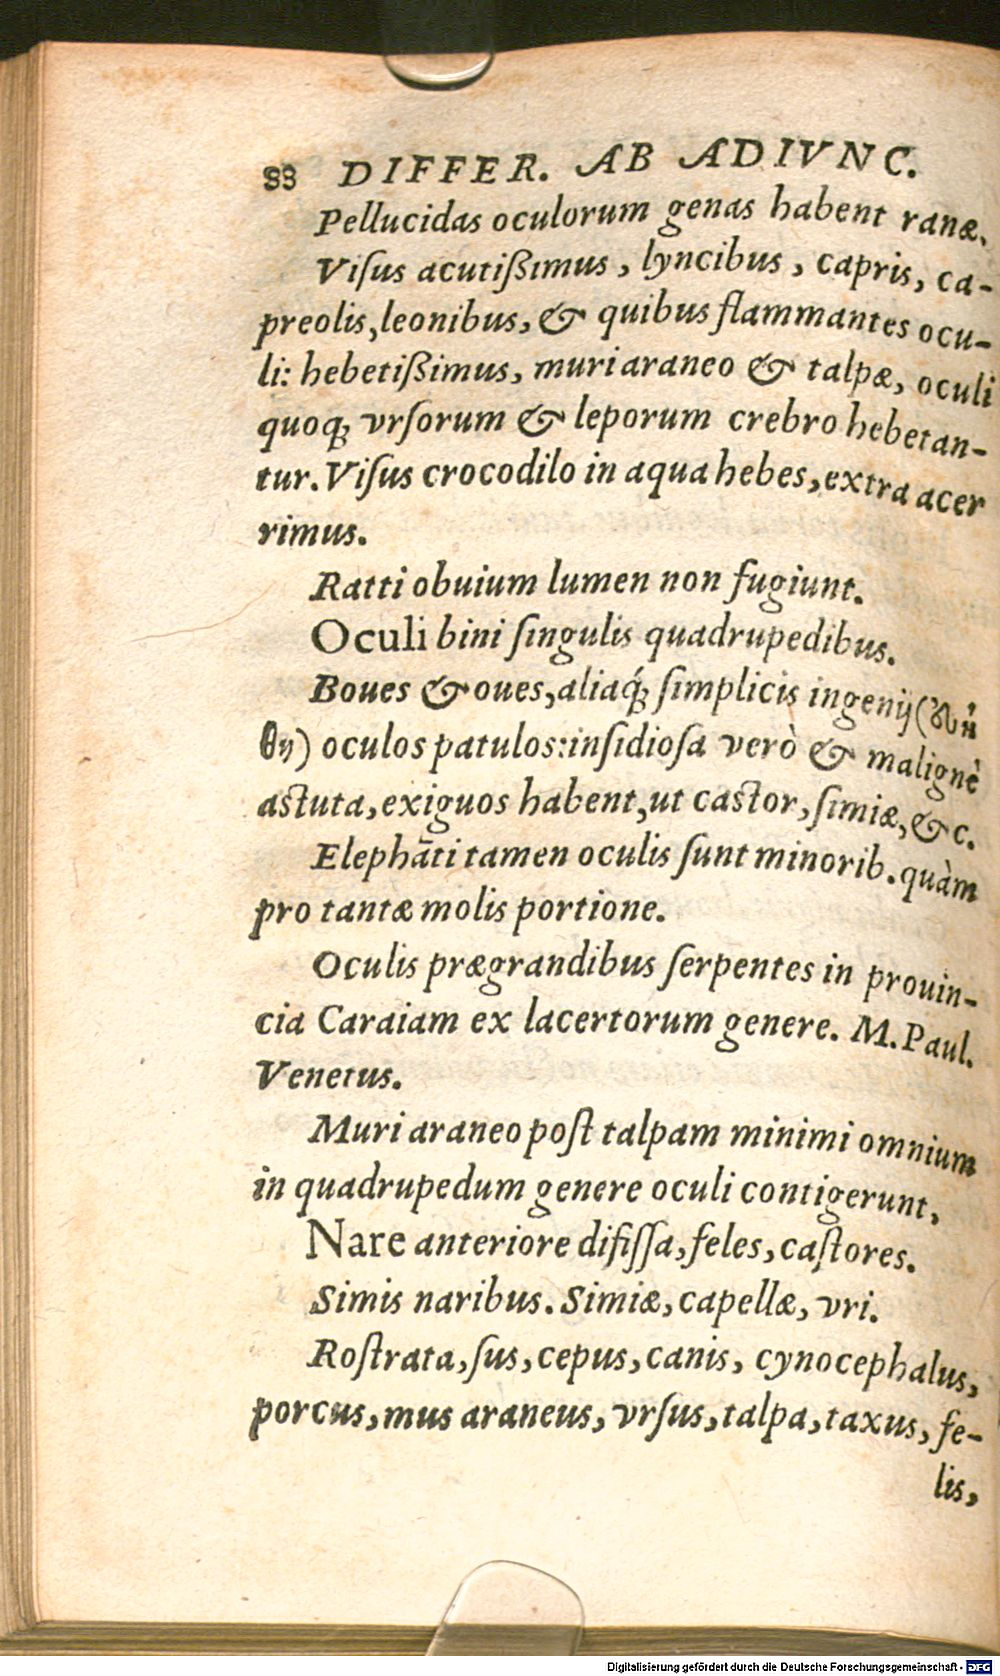 88 DIFFER. AB ADIVNC.
Pellucidas oculorum genas habent ranæ.
Viſus acutißimus, lyncibus, capris, ca-
preolis, leonibus, & quibus flammantes ocu-
li: hebetißimus, muri araneo & talpæ, oculi
quoq; vrſorum & leporum crebro hebetan-
tur. Viſus crocodilo in aqua hebes, extra acer
rimus.
Ratti obuium lumen non fugiunt.
Oculi bini ſingulis quadrupedibus.
Boues & oues, aliaq́; ſimplicis ingenij (
) oculos patulos: inſidioſa verò & malignè
aſtuta, exiguos habent, ut caſtor, ſimiæ, &c.
Elephāti tamen oculis ſunt minorib. quàm
pro tantæ molis portione.
Oculis prægrandibus ſerpentes in prouin-
cia Caraiam ex lacertorum genere. M. Paul.
Venetus.
Muri araneo poſt talpam minimi omnium
in quadrupedum genere oculi contigerunt.
Nare anteriore difiſſa, feles, caſtores.
Simis naribus. Simiæ, capellæ, vri.
Roſtrata, ſus, cepus, canis, cynocephalus,
porcus, mus araneus, vrſus, talpa, taxus, fe-
lis,
Digitalisierung gefördert durch die Deutsche Forschungsgemeinschaft - DFG